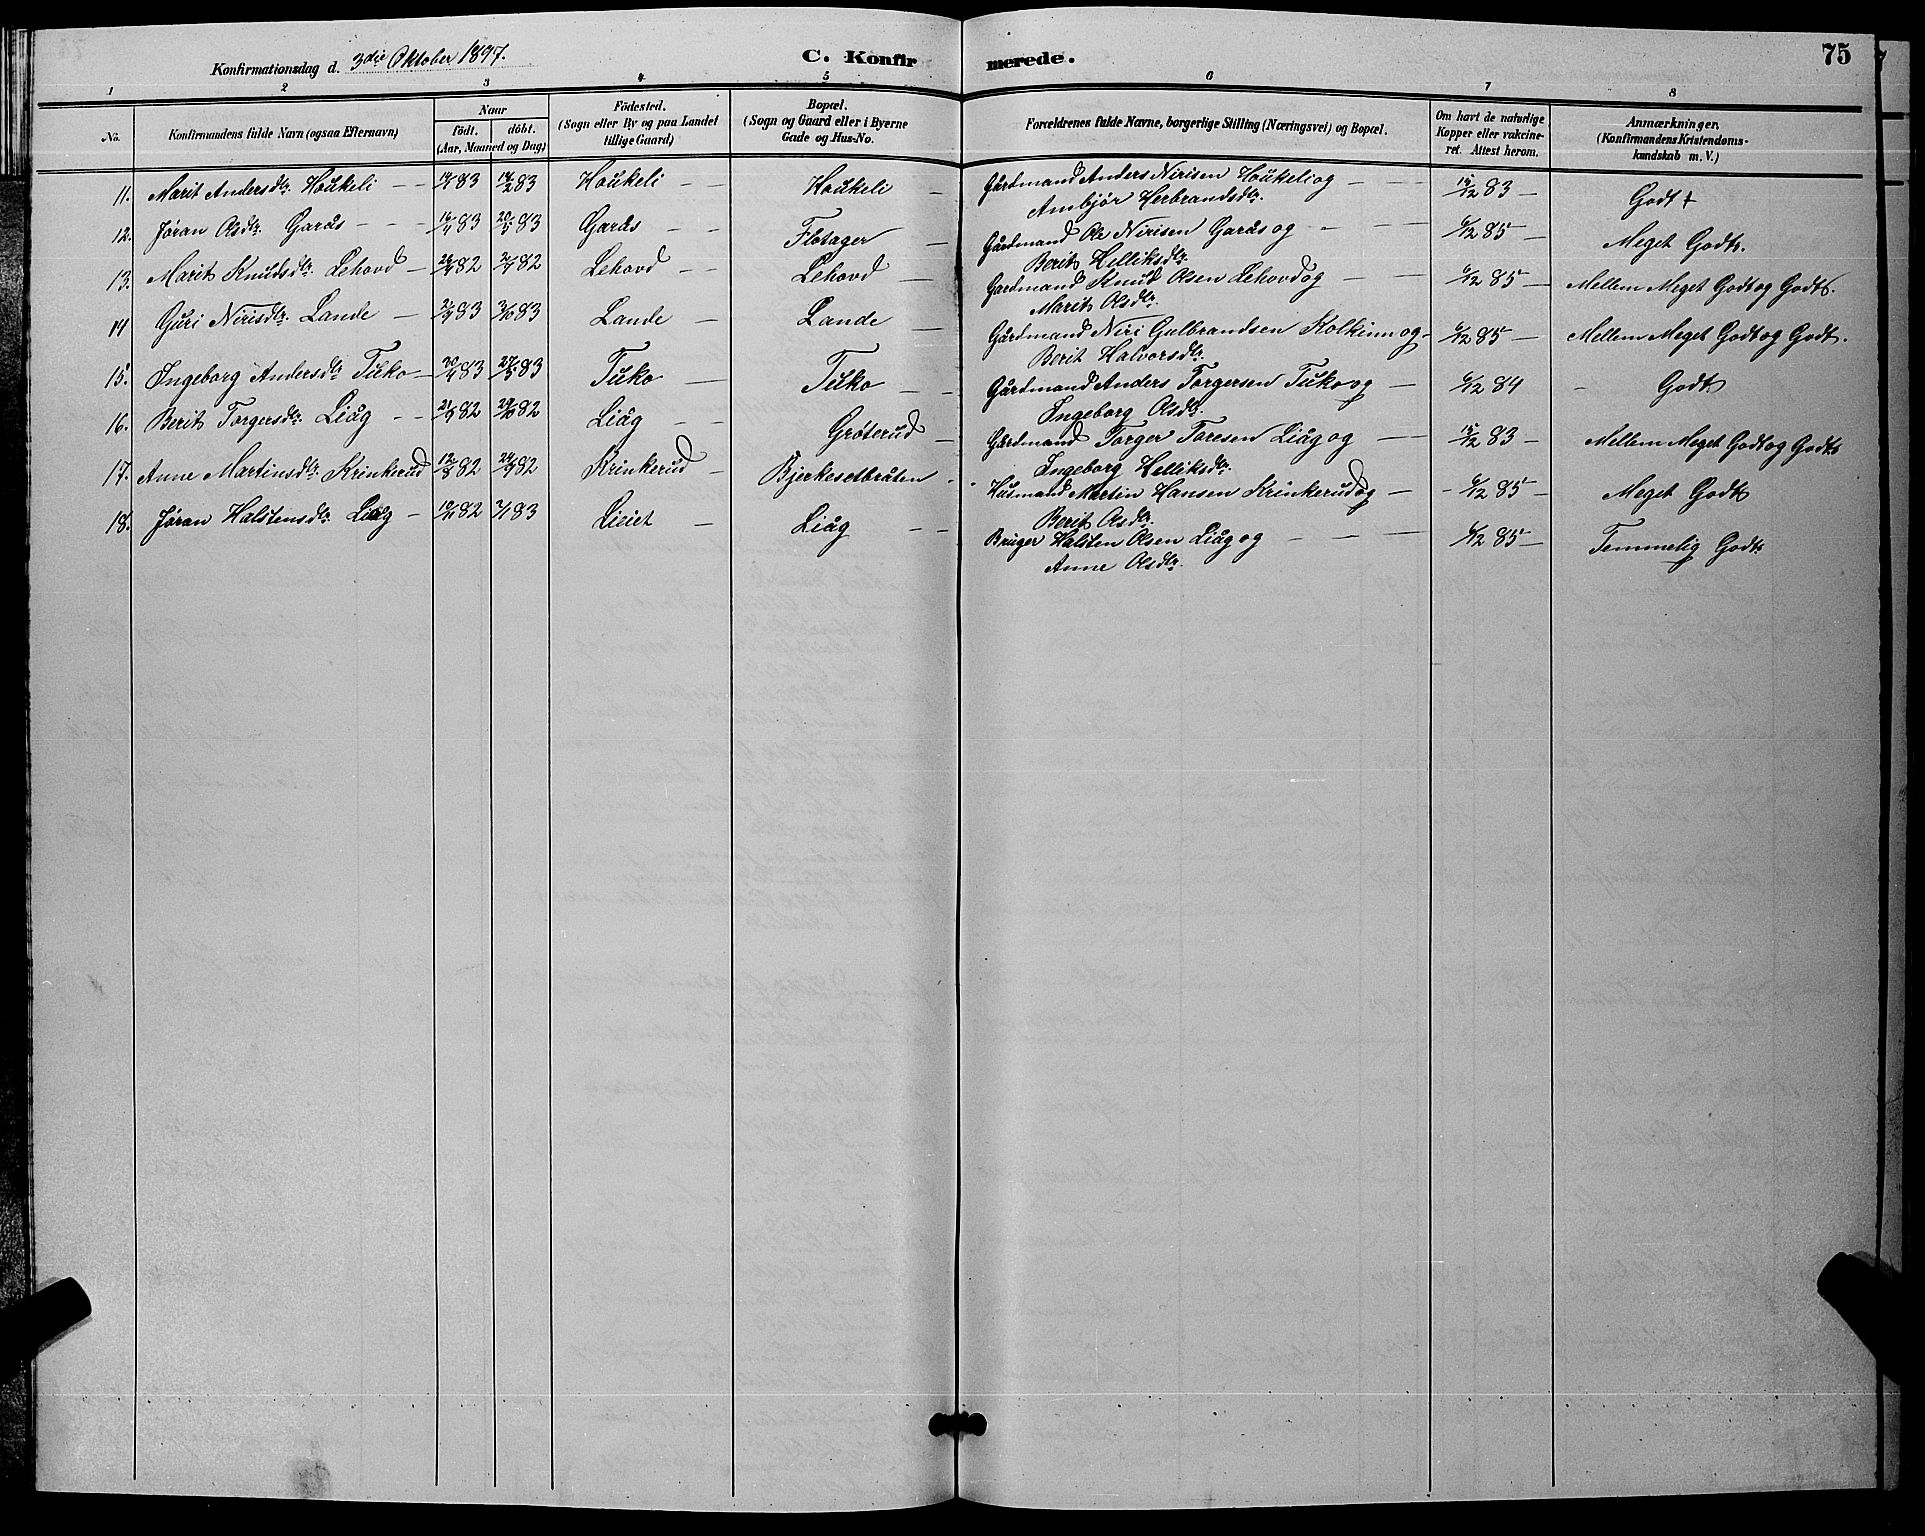 Konfirmationsdag d. 3die Oktober 1897. C. Konfirmerede. 75
1 2 3 4 5 6 7 8
No. Konfirmandens fulde Navn (ogsaa Efternavn) Naar födt. döbt. (Aar, Maaned og Dag) Födested. (Sogn eller By og paa Landet tillige Gaard) Bopæl. (Sogn og Gaard eller i Byerne Gade og Hus-No. Forældrenes fulde Navne, borgerlige Stilling (Næringsvei) og Bopæl. Om havt de naturlige Kopper eller vakcineret. Attest herom. Anmærkninger. (Konfirmandens Kristendomskundskab m. V.)
11. Marit Andersdtr. Houkeli 83 14/2 83 Houkeli Houkeli Gårdmand Anders Nirisen Houkeli og 15/12 83 Godt +
Ambjør Herbrandsdtr.
12. Jøran Olsdtr. Garås 83 20/5 83 Garås Flotager Gårdmand Ole Nirisen Garås og 6/12 85 Meget Godt.
Berit Helliksdtr.
13. Marit Knudsdtr. Lehovd 82 82 Lehovd Lehovd Gardmand Knud Olsen Lehovd og 6/12 85 Mellem Meget Godt og Godt.
Marit Olsdtr.
14 Guri Nirisdtr. Lande 83 3/10 83 Lande Lande Gårdmand Niri Gulbrandsen Kolkinn og 6/12 85 Mellem Meget Godt og Godt.
Berit Halvorsdtr.
15. Ingeborg Andersdtr Tuko 83 27/5 83 Tuko Tuko Gårdmand Anders Torgersen Tuko og 6/12 84 Godt
Ingeborg Olsdtr.
16. Berit Torgersdtr. Liåg 21/9 82 29/10 82 Liåg Grøterud Gårdmand Torger Toresen Liåg og 15/12 83 Mellem Meget Godt og Godt
Ingeborg Helliksdtr.
17. Anne Martinsdtr. Krinkerud 12/8 82 24/9 82 Krinkerud Bjerkesetbråten Husmand Martin Hansen Krinkerud og 6/12 85 Meget Godt
Berit Olsdtr.
18. Jøran Halstensdtr. Liåg 10/11 82 1/1 83 Lieiet Liåg Bruger Halsten Olsen Liåg og 6/12 85 Temmelig Godt
Anne Olsdtr.